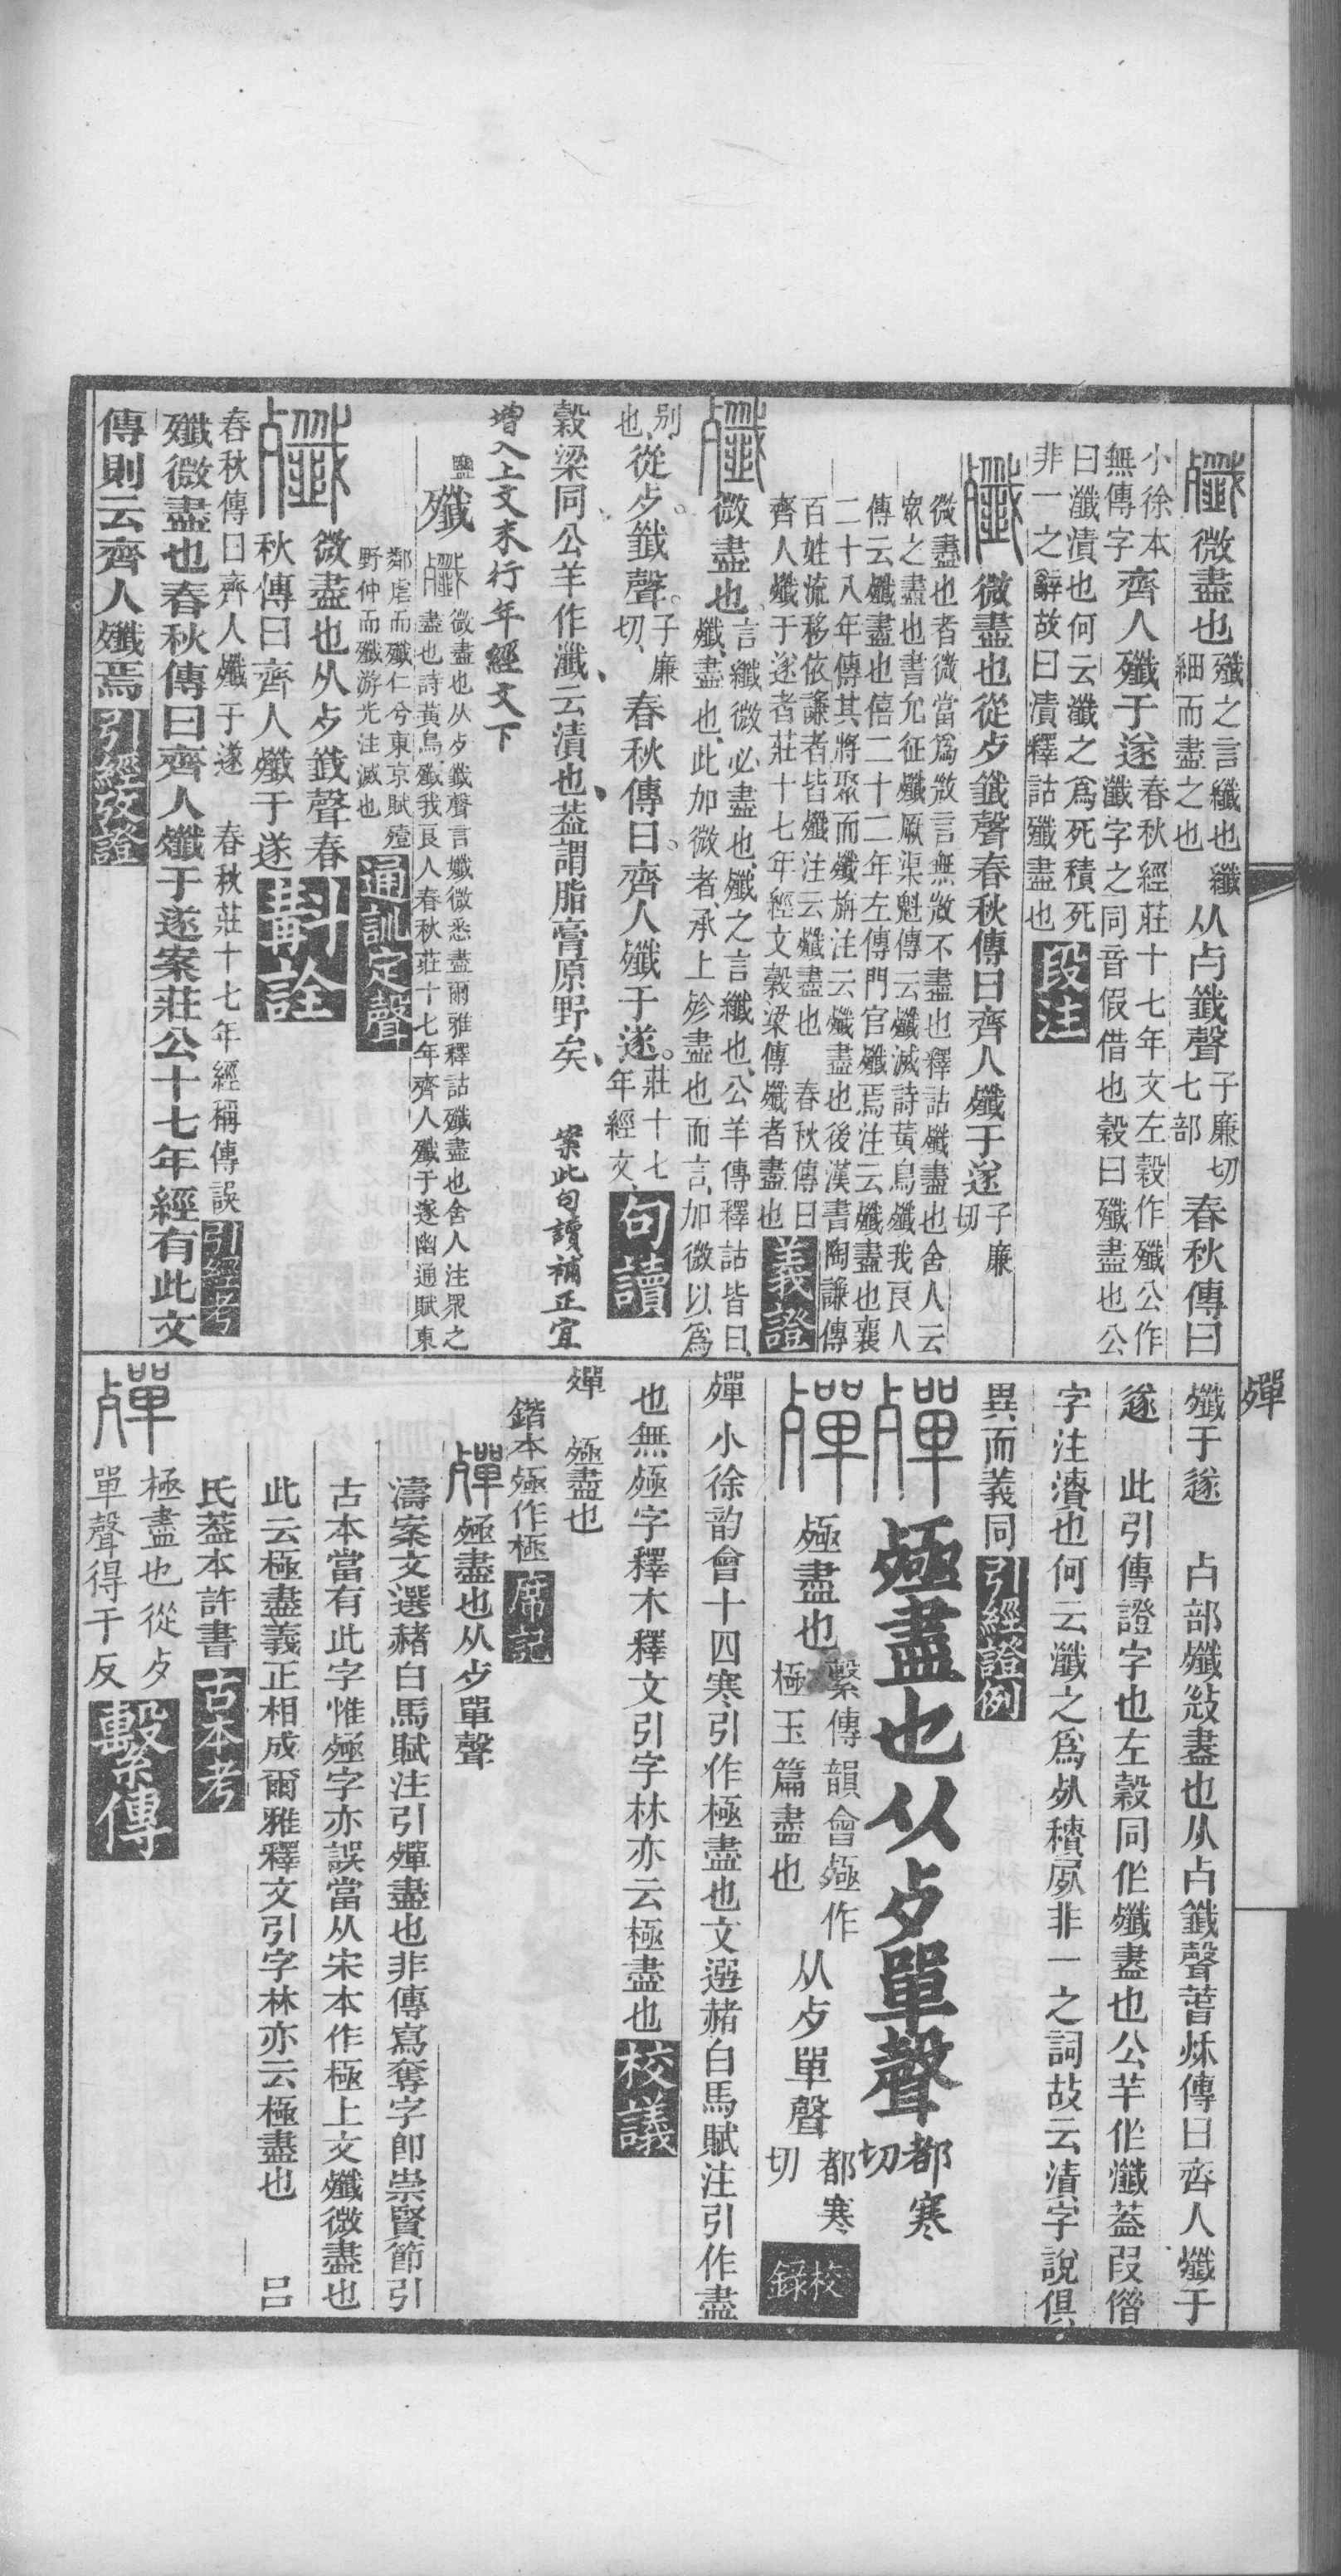 殲 微盡也 殲之言纖也纖細而盡之也 从歺韱聲 子廉切七部 春秋傳曰
小徐本無傳字 齊人殲于遂 春秋經莊十七年文左穀作殲公作瀸字之同音假借也穀曰殲盡也公
曰瀸漬也何云瀸之爲死積死非一之辭故曰漬釋詁殲盡也 段注
殲 微盡也從歺韱聲春秋傳曰齊人殲于遂 子廉切
微盡也者微當爲溦言無溦不盡也釋詁殲盡也舍人云
衆之盡也書允征殲厥渠魁傳云殲滅詩黃鳥殲我良人
傳云殲盡也僖二十二年左傳門官殲焉注云殲盡也襄
二十八年傳其將聚而殲旃注云殲盡也後漢書陶謙傳
百姓流移依謙者皆殲注云殲盡也 春秋傳曰
齊人殲于遂者莊十七年經文穀梁傳殲者盡也 義證
殲 微盡也 言纖微必盡也殲之言纖也公羊傳釋詁皆曰殲盡也此加微者承上殄盡也而言加微以爲
別也 從歺韱聲 子廉切 春秋傳曰齊人殲于遂 莊十七年經文 句讀
穀梁同公羊作瀸云漬也葢謂脂膏原野矣 案此句讀補正宜
增入上文末行年經文下
鹽 殲 殲 微盡也从歺韱聲言孅微悉盡爾雅釋詁殲盡也舍人注眾之
盡也詩黃鳥殲我良人春秋莊十七年齊人殲于遂幽通賦東
鄰虐而殲仁兮東京賦殪野仲而殲游光注滅也 通訓定聲
殲 微盡也从歺韱聲春
秋傳曰齊人殲于遂 斠詮
春秋傳曰齊人殲于遂 春秋莊十七年經稱傳誤 引經考
殲微盡也春秋傳曰齊人殲于遂案莊公十七年經有此文
傳則云齊人殲焉 引經攷證
殫
殲于遂 歺部殲㣲盡也从歺韱聲春秋傳曰齊人殲于
遂 此引傳證字也左穀同作殲盡也公羊作瀸葢叚借
字注瀆也何云瀸之爲死積死非一之詞故云漬字說俱
異而義同 引經證例
殫 殛盡也从歺單聲 都寒切
殫 殛盡也 繫傳韻會殛作極玉篇盡也 从歺單聲 都寒切 校錄
殫 小徐韵會十四寒引作極盡也文選赭白馬賦注引作盡
也無殛字釋木釋文引字林亦云極盡也 校議
殫 殛盡也
鍇本殛作極 席記
殫 殛盡也从歺單聲
濤案文選赭白馬賦注引殫盡也非傳寫奪字卽崇賢節引
古本當有此字惟殛字亦誤當从宋本作極上文殲微盡也
此云極盡義正相成爾雅釋文引字林亦云極盡也 呂
氏葢本許書 古本考
殫 極盡也從歺
單聲得干反 繫傳